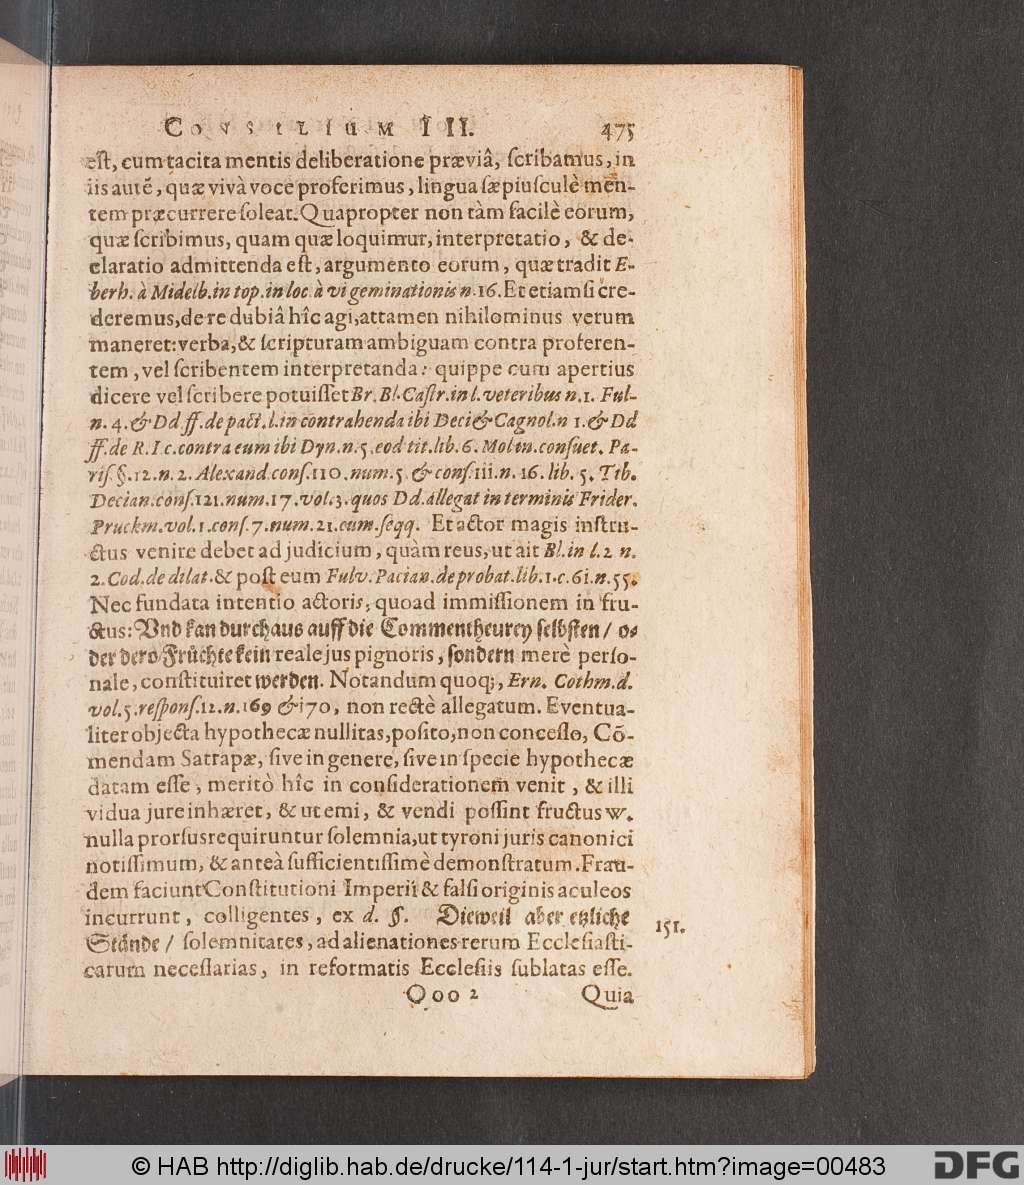 CONSILIUM III. 475
est, cum tacita mentis deliberatione præviâ, scribamus, in
iis autē, quæ vivà voce proferimus, lingua sæpiusculè men-
tem præcurrere soleat. Quapropter non tàm facilè eorum,
quæ scribimus, quam quæ loquimur, interpretatio, & de-
claratio admittenda est, argumento eorum, quæ tradit E-
berh. à Midelb. in top. in loc. à vi geminationis n. 16. Et etiamsi cre-
deremus, de re dubiâ hîc agi, attamen nihilominus verum
maneret: verba, & scripturam ambiguam contra proferen-
tem, vel scribentem interpretanda: quippe cum apertius
dicere vel scribere potuisset Br. Bl. Castr. in l. veteribus n. 1. Ful-
n. 4. & Dd. ff. de pact. l. in contrahenda ibi Deci & Cagnol. n 1. & Dd
ff. de R. I c. contra eum ibi Dyn. n. 5. eod tit. lib. 6. Molin. consuet. Pa-
ris. §. 12. n. 2. Alexand. cons. 110. num. 5. & cons. 111. n. 16. lib. 5. Tib.
Decian. cons. 121. num. 17. vol. 3. quos Dd. allegat in terminis Frider.
Pruckm. vol. 1. cons. 7. num. 21. cum seqq. Et actor magis instru-
ctus venire debet ad judicium, quàm reus, ut ait Bl. in l. 2 n.
2. Cod. de dilat. & post eum Fulv. Pacian. de probat. lib. 1. c. 61. n. 55.
Nec fundata intentio actoris, quoad immissionem in fru-
ctus: Vnd kan durchaus auff die Commentheurey selbsten / o-
der dero Früchte kein reale jus pignoris, sondern merè perso-
nale, constituiret werden. Notandum quoq;, Ern. Cothm. d.
vol. 5. respons. 12. n. 169 & 170, non rectè allegatum. Eventua-
liter objecta hypothecæ nullitas, posito, non concesso, Cō-
mendam Satrapæ, sive in genere, sive in specie hypothecæ
datam esse, meritò hîc in considerationem venit, & illi
vidua jure inhæret, & ut emi, & vendi possint fructus w.
nulla prorsus requiruntur solemnia, ut tyroni juris canonici
notissimum, & anteà sufficientissimè demonstratum. Frau-
dem faciunt Constitutioni Imperii & falsi originis aculeos
incurrunt, colligentes, ex d. §. Dieweil aber etzliche
Stände / solemnitates, ad alienationes rerum Ecclesiasti-
carum necessarias, in reformatis Ecclesiis sublatas esse.
151.
Ooo 2 Quia
© HAB http://diglib.hab.de/drucke/114-1-jur/start.htm?image=00483
DFG